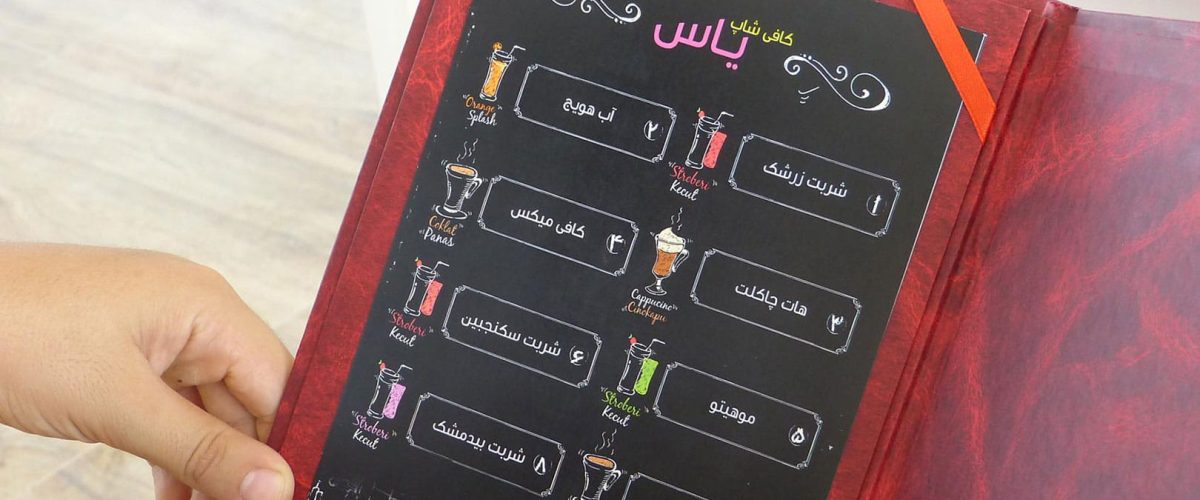 کافی شاپ
یاس
۱ شربت زرشک
"Stroberi
Kecut"
۲ آب هویج
"Orange
Splash"
۳ هات چاکلت
Cappucine
Cinokapu
۴ کافی میکس
Coklat
Panas
۵ موهیتو
"Stroberi
Kecut"
۶ شربت سکنجبین
"Stroberi
Kecut"
۸ شربت بیدمشک
"Stroberi
Kecut"